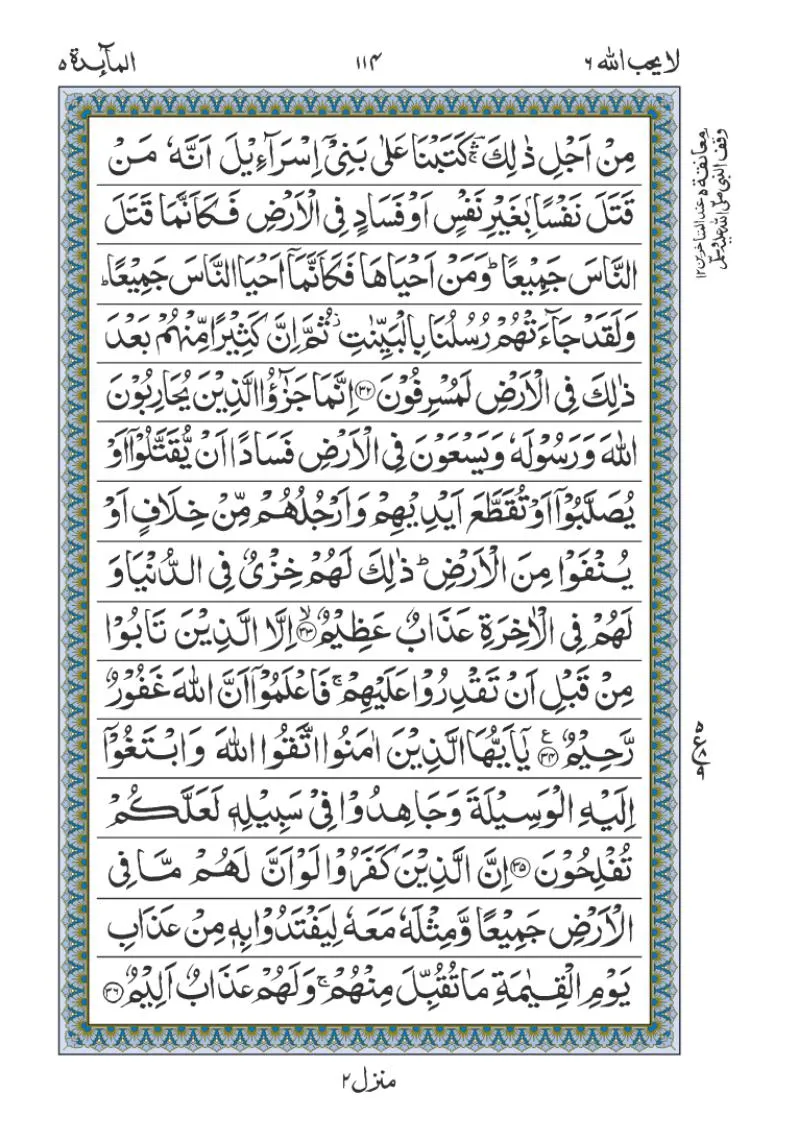 لا يحب الله ٦
١١٤
المآئدة ٥
مِنْ اَجْلِ ذٰلِكَ ۚۛ كَتَبْنَا عَلٰى بَنِيْۤ اِسْرَآءِيْلَ اَنَّهٗ مَنْ
قَتَلَ نَفْسًۢا بِغَيْرِ نَفْسٍ اَوْ فَسَادٍ فِي الْاَرْضِ فَكَاَنَّمَا قَتَلَ
النَّاسَ جَمِيْعًا ؕ وَمَنْ اَحْيَاهَا فَكَاَنَّمَاۤ اَحْيَا النَّاسَ جَمِيْعًا ؕ
وَلَقَدْ جَآءَتْهُمْ رُسُلُنَا بِالْبَيِّنٰتِ ؗ ثُمَّ اِنَّ كَثِيْرًا مِّنْهُمْ بَعْدَ
ذٰلِكَ فِي الْاَرْضِ لَمُسْرِفُوْنَ ﴿۳۲﴾ اِنَّمَا جَزٰٓؤُا الَّذِيْنَ يُحَارِبُوْنَ
اللّٰهَ وَرَسُوْلَهٗ وَيَسْعَوْنَ فِي الْاَرْضِ فَسَادًا اَنْ يُّقَتَّلُوْۤا اَوْ
يُصَلَّبُوْۤا اَوْ تُقَطَّعَ اَيْدِيْهِمْ وَاَرْجُلُهُمْ مِّنْ خِلَافٍ اَوْ
يُنْفَوْا مِنَ الْاَرْضِ ؕ ذٰلِكَ لَهُمْ خِزْيٌ فِي الدُّنْيَا وَ
لَهُمْ فِي الْاٰخِرَةِ عَذَابٌ عَظِيْمٌ ﴿۳۳﴾ۙ اِلَّا الَّذِيْنَ تَابُوْا
مِنْ قَبْلِ اَنْ تَقْدِرُوْا عَلَيْهِمْ ۚ فَاعْلَمُوْۤا اَنَّ اللّٰهَ غَفُوْرٌ
رَّحِيْمٌ ﴿۳۴﴾ ع يٰۤاَيُّهَا الَّذِيْنَ اٰمَنُوا اتَّقُوا اللّٰهَ وَابْتَغُوْۤا
اِلَيْهِ الْوَسِيْلَةَ وَجَاهِدُوْا فِيْ سَبِيْلِهٖ لَعَلَّكُمْ
تُفْلِحُوْنَ ﴿۳۵﴾ اِنَّ الَّذِيْنَ كَفَرُوْا لَوْ اَنَّ لَهُمْ مَّا فِي
الْاَرْضِ جَمِيْعًا وَّمِثْلَهٗ مَعَهٗ لِيَفْتَدُوْا بِهٖ مِنْ عَذَابِ
يَوْمِ الْقِيٰمَةِ مَا تُقُبِّلَ مِنْهُمْ ۚ وَلَهُمْ عَذَابٌ اَلِيْمٌ ﴿۳۶﴾
وقف النبي صلى الله عليه وسلم
معانقة ٥ عند المتاخرين ١٢
منزل ٢